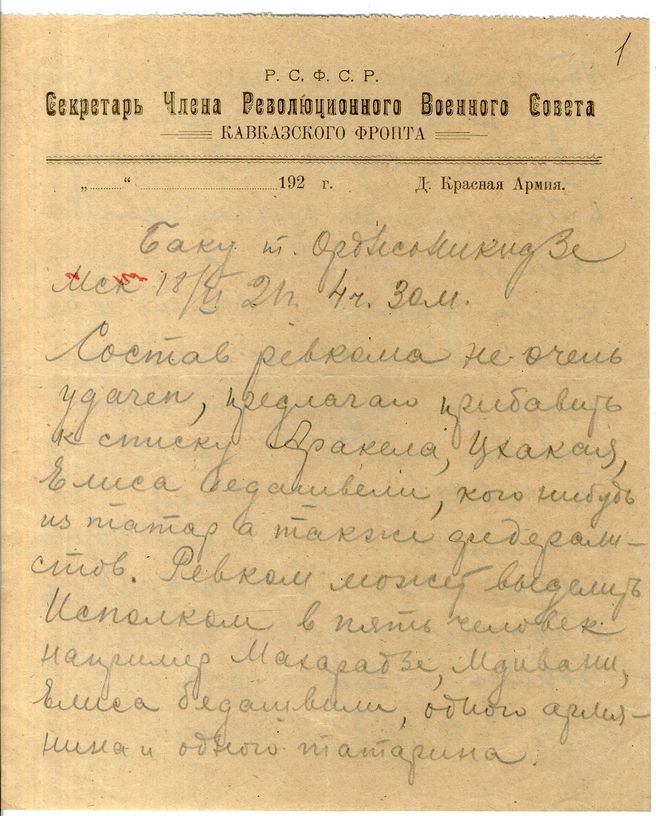 1
Р. С. Ф. С. Р.
Секретарь Члена Революционного Военного Совета
КАВКАЗСКОГО ФРОНТА
„ “ 192 г. Д. Красная Армия.
Баку т. Орджоникидзе
Мск 18/II 21г. 4ч. 30м.
Состав ревкома не очень
удачен, предлагаю прибавить
к списку Аракела, Цхакая,
Елиса бедашвели, кого нибудь
из татар а также федерали–
стов. Ревком может выделить
Исполком в пять человек
например Махарадзе, Мдивани,
Елиса бедашвили, одного армя–
нина и одного татарина.